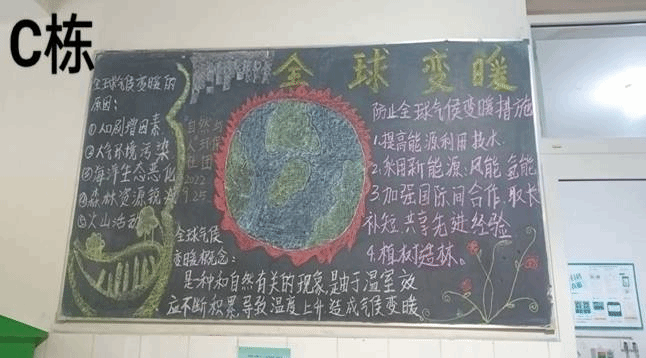 C栋
全球变暖
全球气候变暖的
原因:
①人口剧增因素
②大气环境污染
③海洋生态恶化
④森林资源锐减
⑤火山活动
自然与
人环保
社团
2022
9 25
全球气候
变暖概念:
是一种和自然有关的现象,是由于温室效
应不断积累,导致温度上升造成气候变暖
防止全球气候变暖措施
1.提高能源利用技水.
2.采用新能源:风能,氢能,
3.加强国际间合作,取长
补短,共享先进经验
4.植树造林。